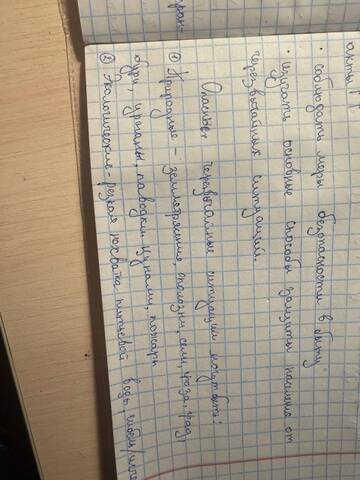 акты
• соблюдать меры безопасности в быту
• изучать основные способы защиты населения от
чрезвычайных ситуаций.
Опасные чрезвычайные ситуации могут быть:
① Природные – землетрясение, оползни, сели, гроза, град,
бури, ураганы, паводки, цунами, пожары
② Экологические – резкая нехватка питьевой воды,